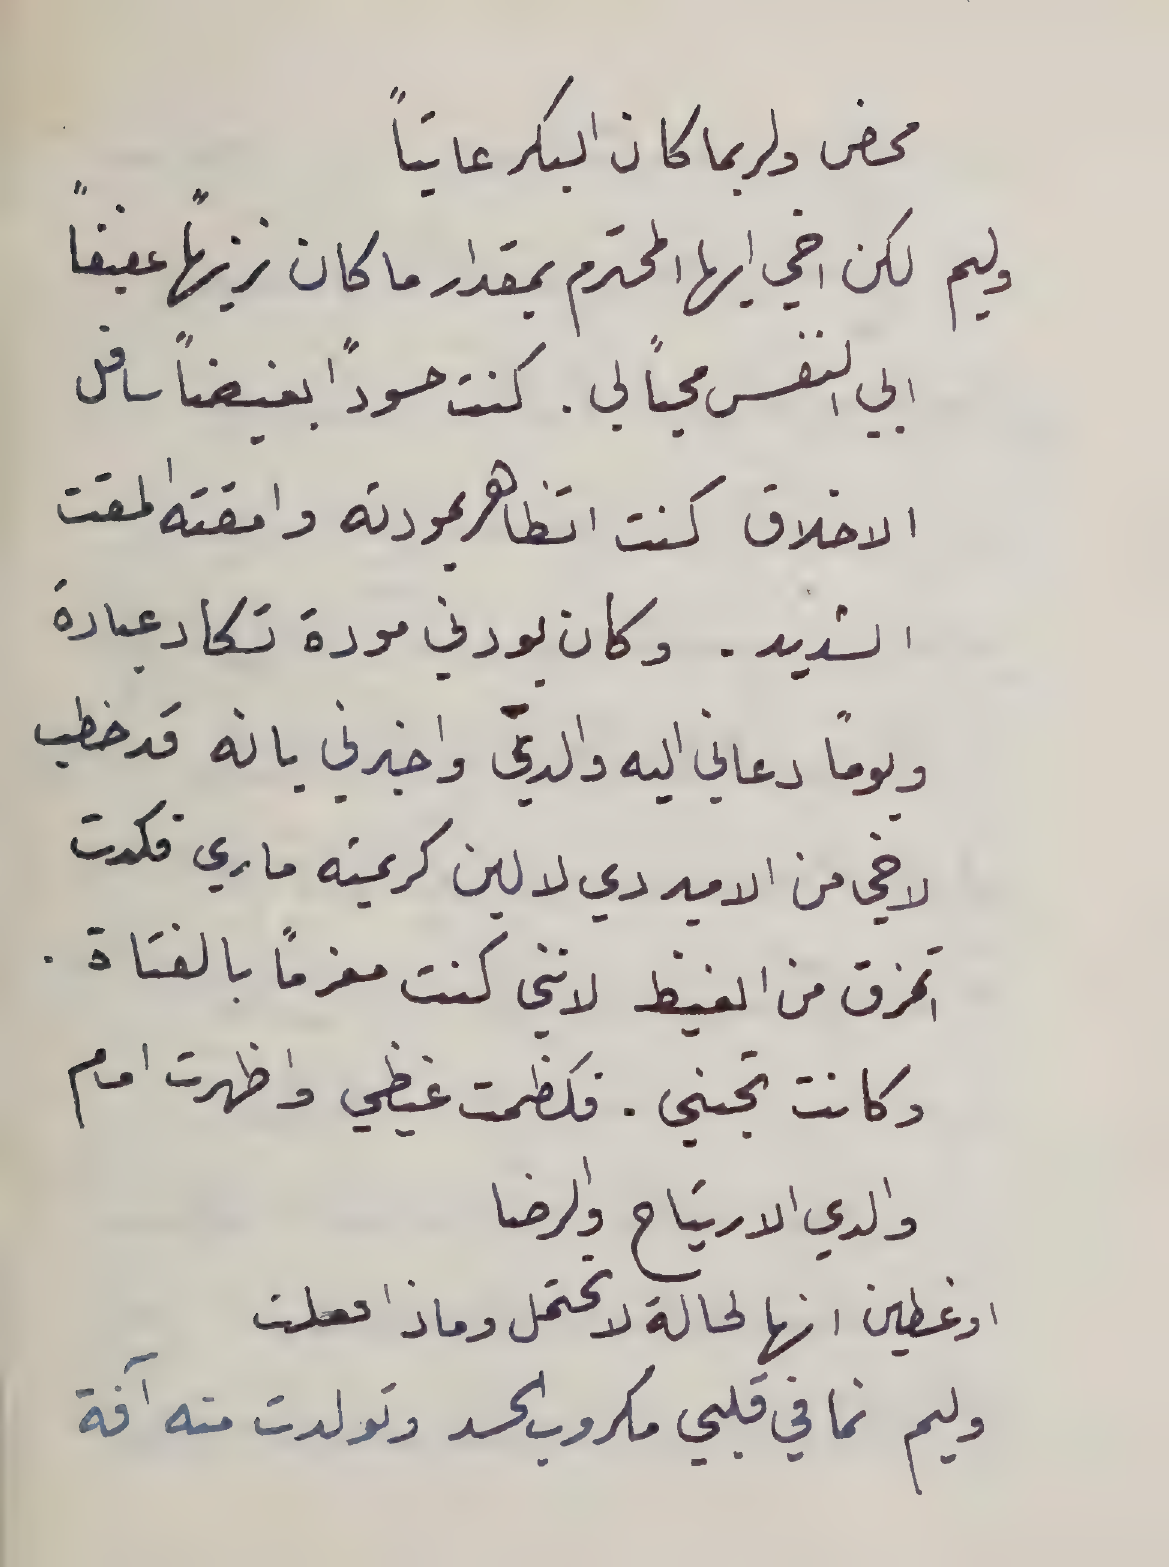 محض ولربما كان البكر عاتياً
وليم لكن اخي ايها المحترم بمقدار ما كان نزيهاً عفيفاً
ابي النفس محباً لي . كنت حسوداً بغيضاً سافل
الاخلاق كنت اتظاهر بمودته وامقته المقت
الشديد . وكان يودني مودة تكاد عبادة
ويوماً دعاني اليه والديّ واخبرني بانه قد خطب
لاخي من الامير دي لالين كريمته ماري فكدت
اتمزق من الغيظ لانني كنت مغرماً بالفتاة .
وكانت تحبني . فكظمت غيظي واظهرت امام
والدي الارتياح والرضا
اوغطين انها لحالة لا تحتمل وماذا فعلت
وليم نما في قلبي مكروب الحسد وتولدت منه آفة